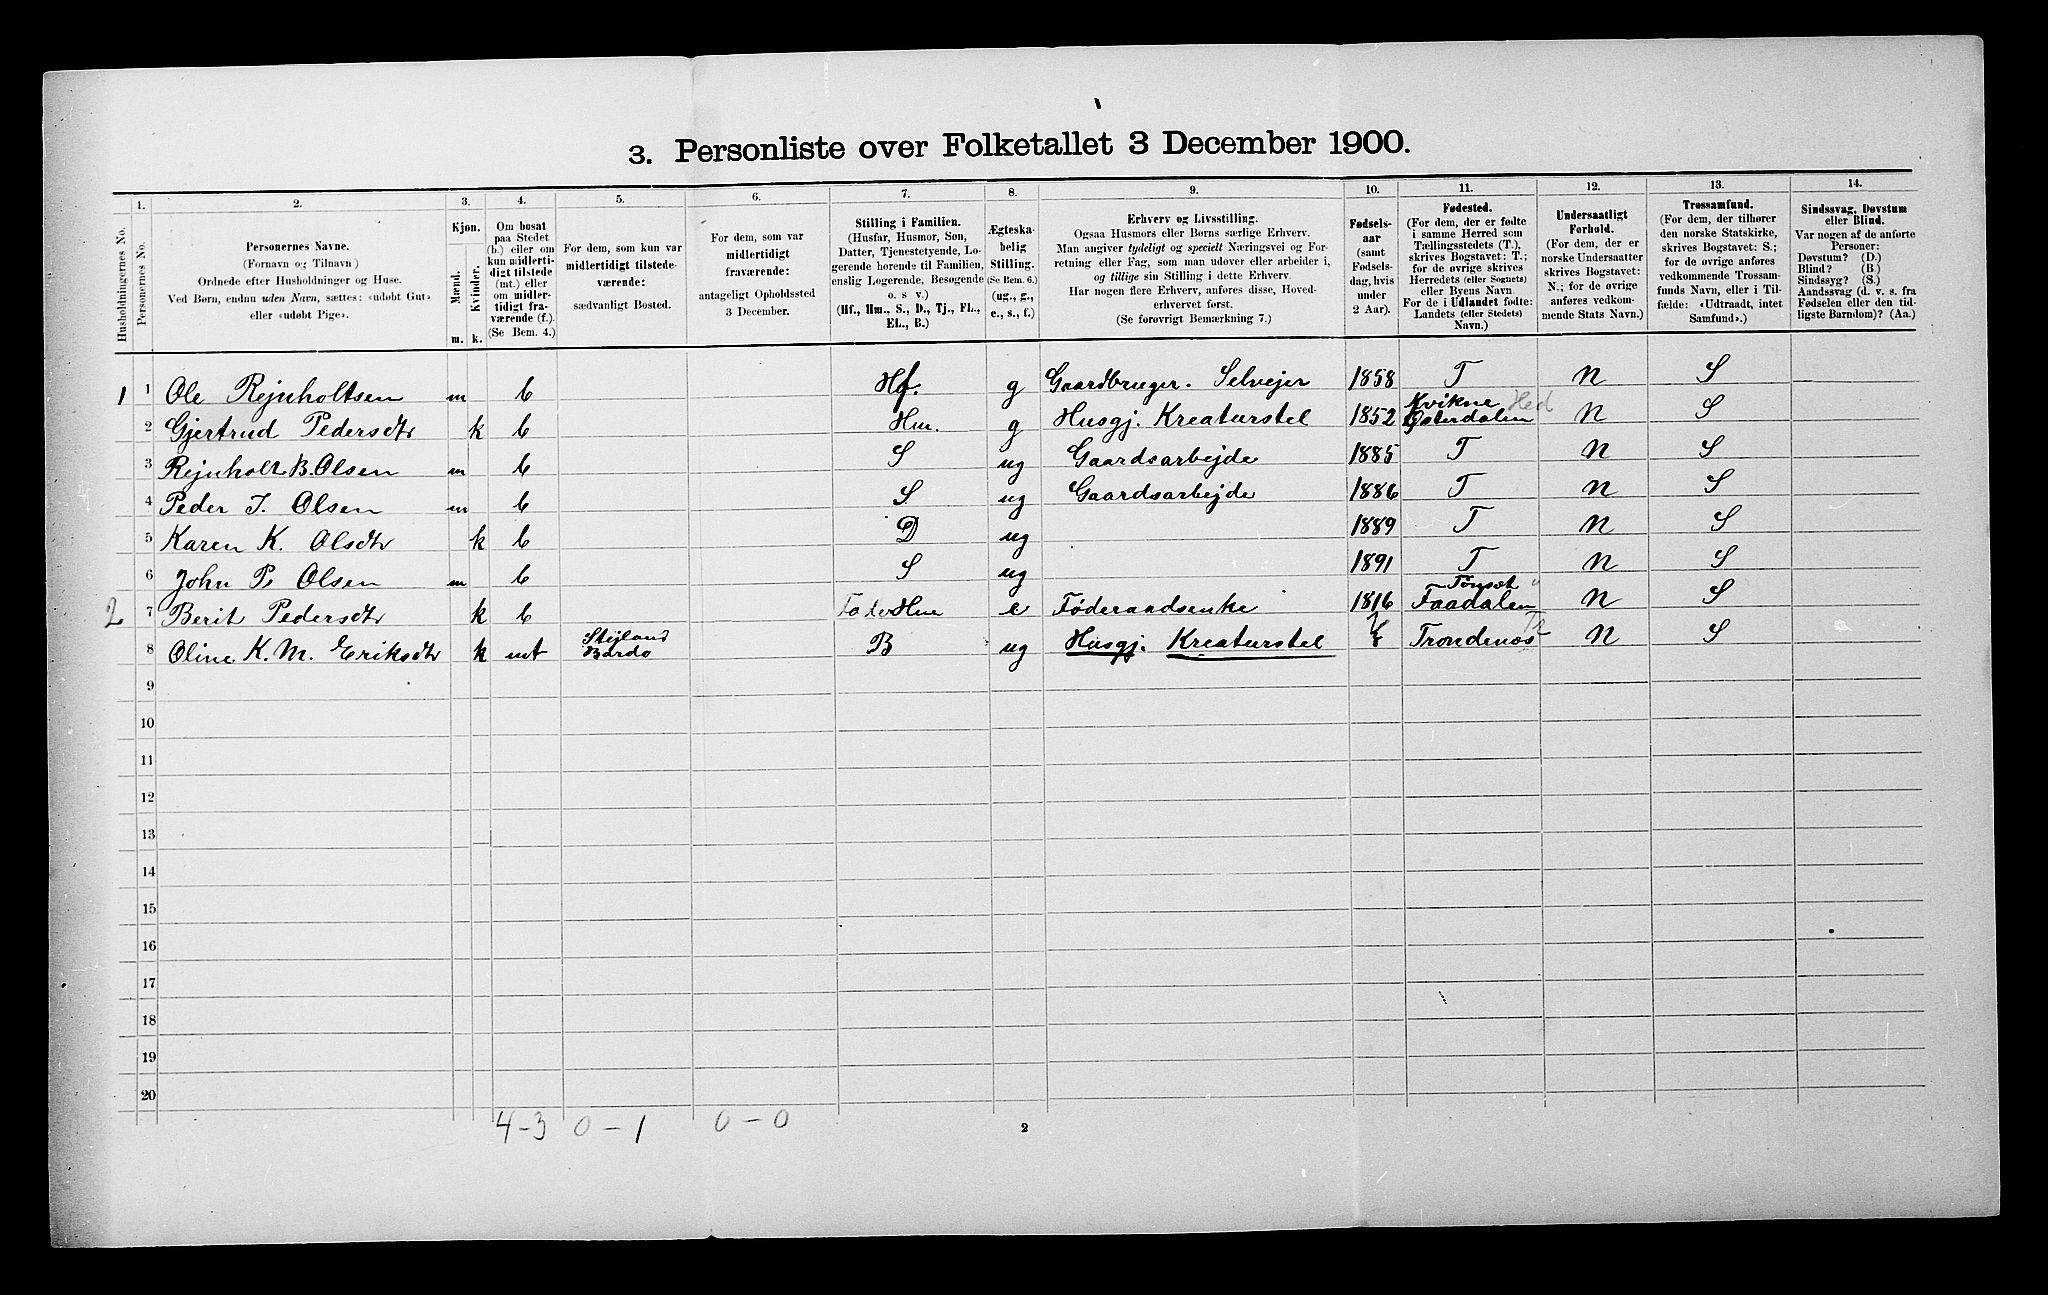 3. Personliste over Folketallet 3 December 1900.
Husholdningernes No.
1. Personernes No.
2. Personernes Navne. (Fornavn og Tilnavn) Ordnede efter Husholdninger og Huse. Ved Børn, endnu uden Navn, sættes: «udøbt Gut» eller «udøbt Pige».
3. Kjøn. Mænd. Kvinder. m. k.
4. Om bosat paa Stedet (b.) eller om kun midlertidigt tilstede (mt.) eller om midlertidigt fraværende (f.) (Se Bem. 4.)
5. For dem, som kun var midlertidigt tilstedeværende: sædvanligt Bosted.
6. For dem, som var midlertidigt fraværende: antageligt Opholdssted 3 December.
7. Stilling i Familien. (Husfar, Husmor, Søn, Datter, Tjenestetyende, Logerende hørende til Familien, enslig Logerende, Besøgende o. s v.) (Hf., Hm., S., D., Tj., FL., EL., B.)
8. Ægteskabelig Stilling. (Se Bem. 6.) (ug., g., e., s., f.)
9. Erhverv og Livsstilling. Ogsaa Husmors eller Børns særlige Erhverv. Man angiver tydeligt og specielt Næringsvei og Forretning eller Fag, som man udøver eller arbeider i, og tillige sin Stilling i dette Erhverv. Har nogen flere Erhverv, anføres disse, Hoved-erhvervet først. (Se forøvrigt Bemærkning 7.)
10. Fødselsaar (samt Fødselsdag, hvis under 2 Aar).
11. Fødested. (For dem, der er fødte i samme Herred som Tællingsstedets (T.), skrives Bogstavet: T.; for de øvrige skrives Herredets (eller Sognets) eller Byens Navn For de i Udlandet fødte: Landets (eller Stedets) Navn.)
12. Undersaatligt Forhold. (For dem, der er norske Undersaatter skrives Bogstavet: N.; for de øvrige anføres vedkommende Stats Navn.)
13. Trossamfund. (For dem, der tilhører den norske Statskirke, skrives Bogstavet: S.; for de øvrige anføres vedkommende Trossamfunds Navn, eller i Tilfælde: «Udtraadt, intet Samfund».)
14. Sindssvag, Døvstum eller Blind. Var nogen af de anførte Personer: Døvstum? (D.) Blind? (B.) Sindssyg? (S.) Aandssvag (d. v. s. fra Fødselen eller den tidligste Barndom)? (Aa.)
1 1 Ole Rejnholtsen m b Hf. g Gaardbruger. Selvejer 1858 T N S
2 Gjertrud Pedersdtr k b Hm. g Husgj. Kreaturstel 1852 Kvikne Østerdalen Hed N S
3 Rejnholt B. Olsen m b S ug Gaardsarbejde 1885 T N S
4 Peder J. Olsen m b S ug Gaardsarbejde 1886 T N S
5 Karen K. Olsdtr k b D ug 1889 T N S
6 John P. Olsen m b S ug 1891 T N S
2 7 Berit Pedersdtr k b e Føderaadsenke 1816 Tönset Faadalen N S
8 Oline K. M. Eriksdtr k mt Stejland Bardo B ug Husgj. Kreaturstel Trondenæs N S
9
10
11
12
13
14
15
16
17
18
19
20
4-3 0-1 0-0
2